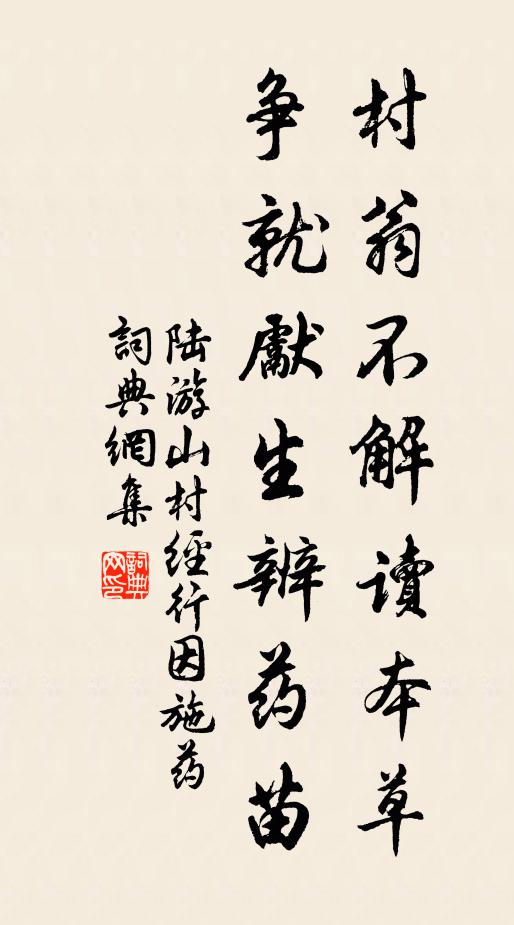 村翁不解讀本草
争就獻生辨药苗
陆游山村經行因施药
詞典網集
詞典网印